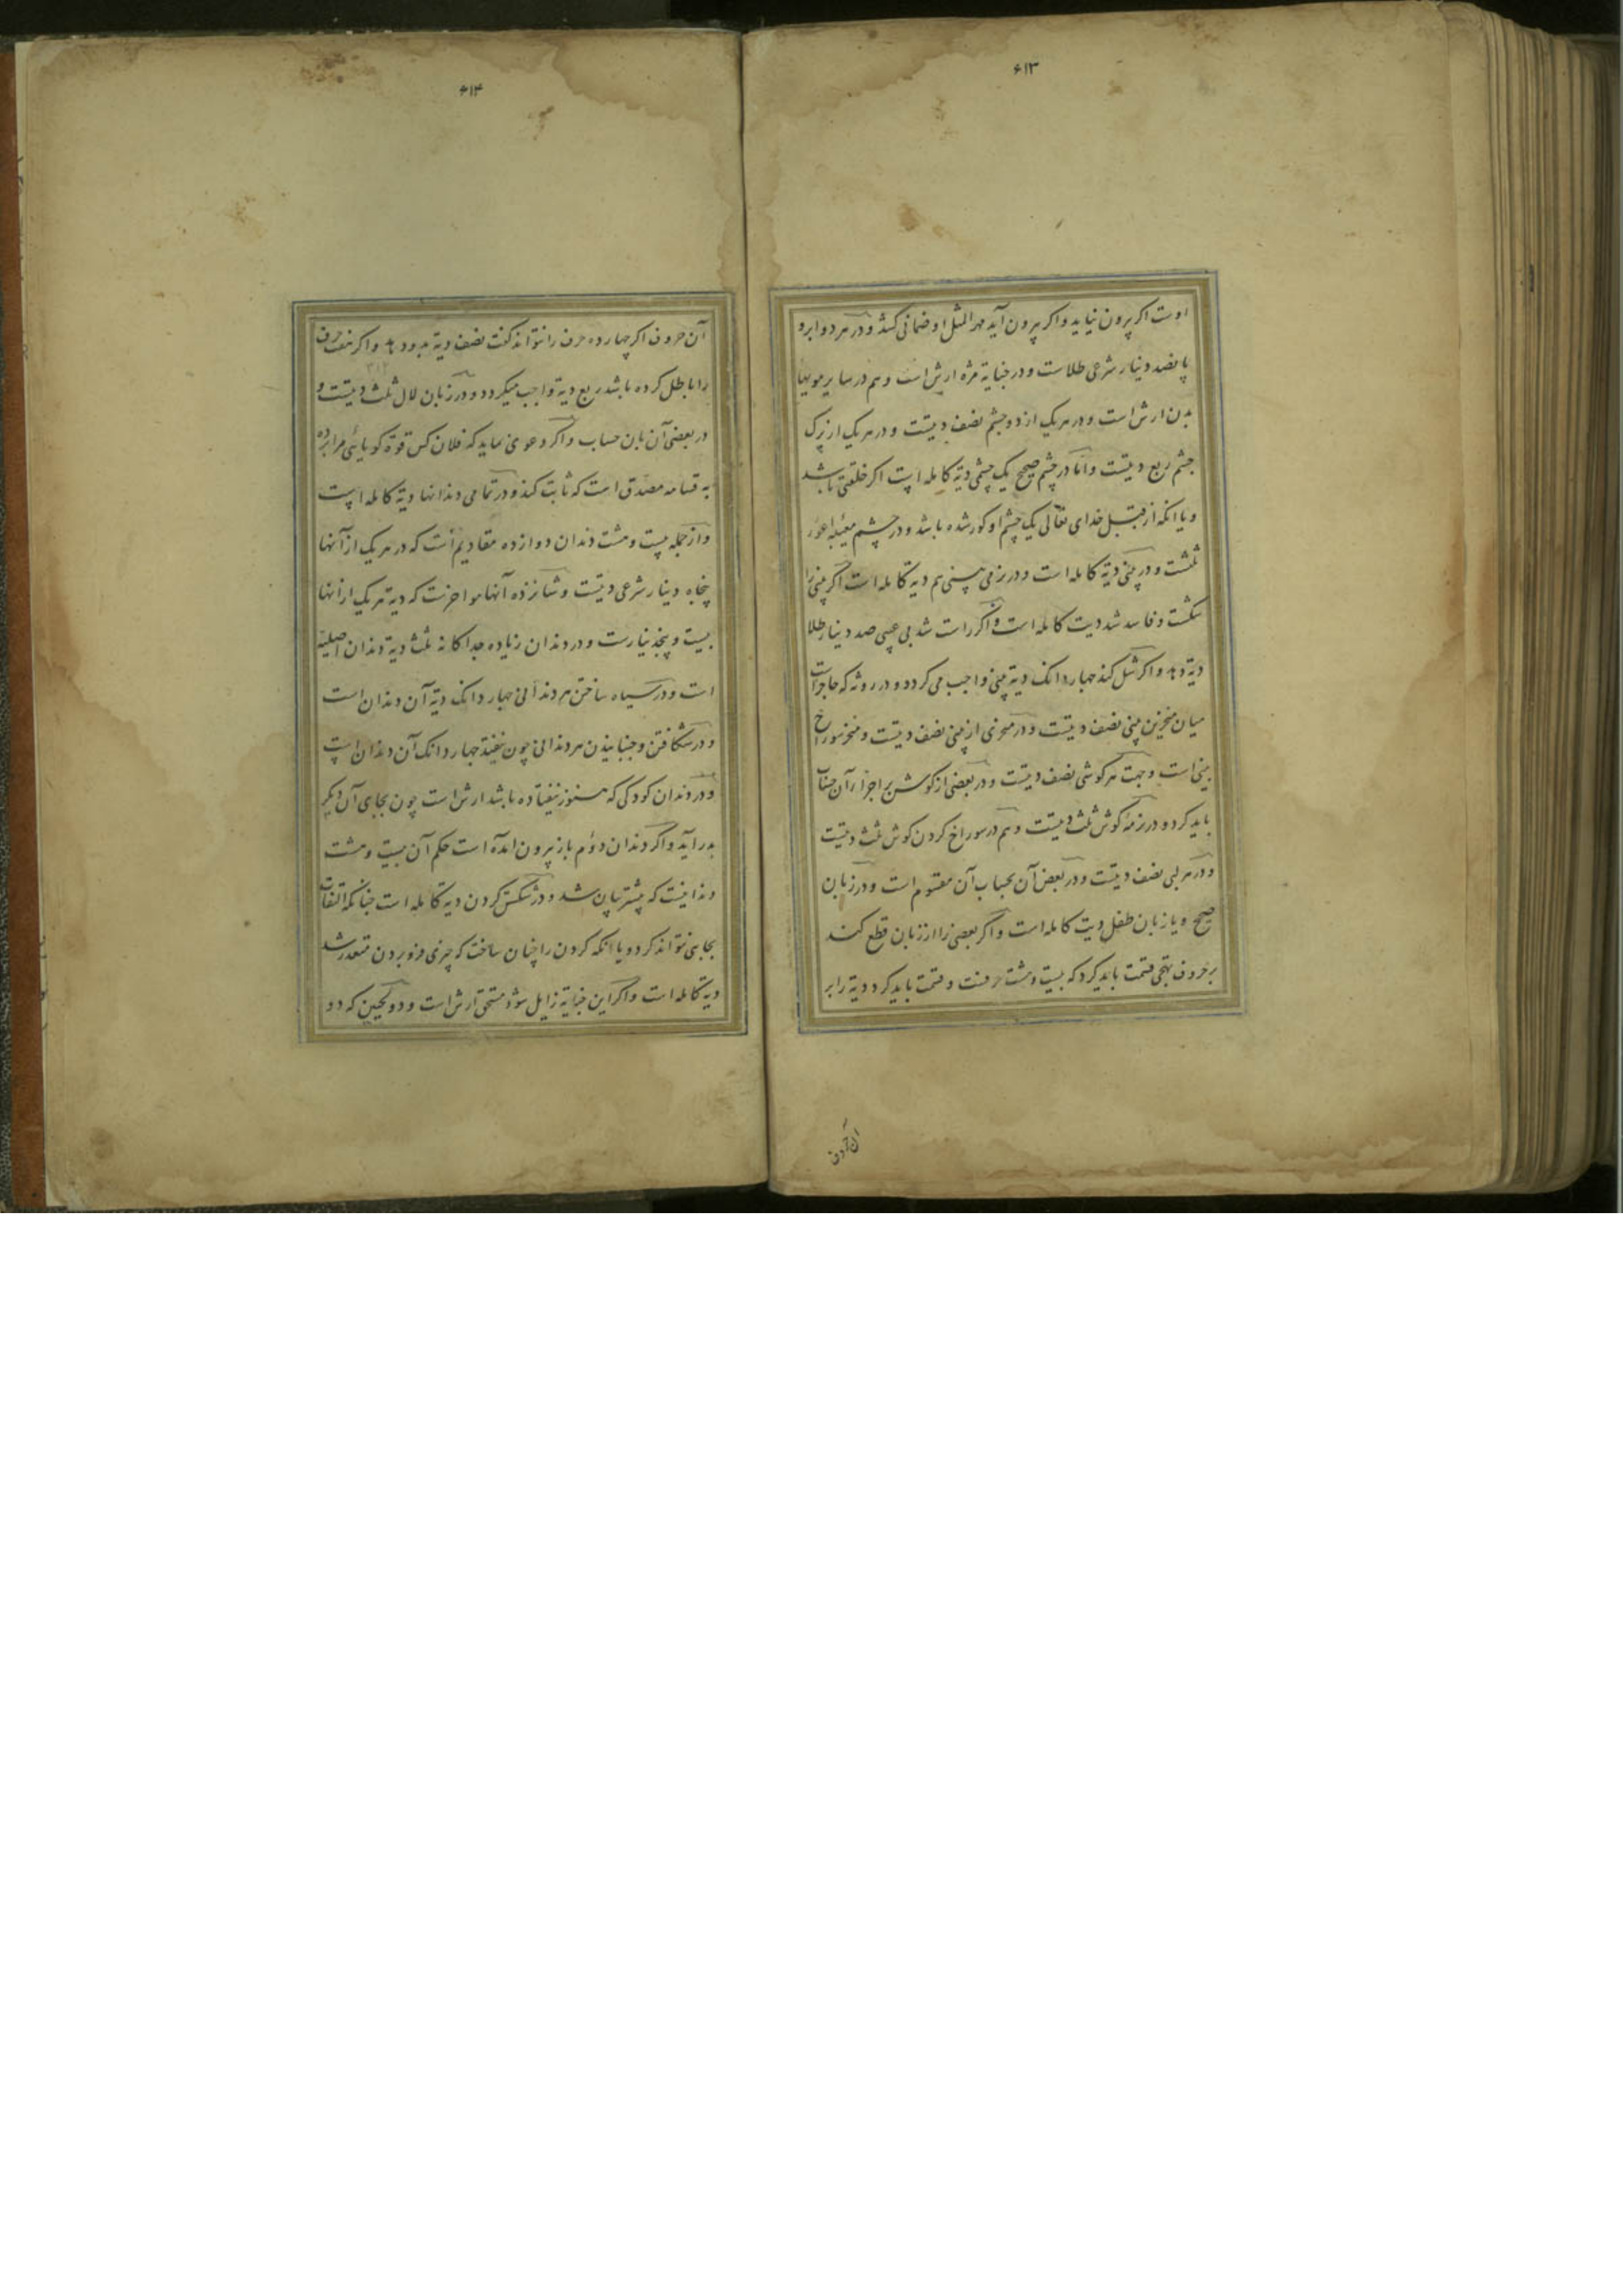 ۶۱۳
اوست اکر پرون نیاید واکر پرون آید مهر المثل او ضمانی کشد ودر هر دو ابرو
پانصد دینار شرعی طلاست ودر جنایة مژه ارش است وهم در سایر مویها
بدن ارش است ودر هر یک از دو چشم نصف دیتست ودر هر یک از پرک
چشم ربع دیتست واما در چشم صحیح یک چشمی دیة کامله است اکر خلقتی باشد
ویا انکه از قبل خدای تعالی یک چشم او کور شده باشد ودر چشم معیبه اعور
ثلثست ودر پنی دیة کامله است ودر نرمی پنی هم دیة کامله است اکر پنی را
شکست وفاسد شد دیت کامله است واکر راست شد بی عیبی صد دینار طلا
دیة دهد واکر شل کند چهار دانک دیة پنی واجب می کردد ودر روثه که حاجزاست
میان منخرین پنی نصف دیتست ودر منخری از پنی نصف دیتست ومنخر سوراخ
بینی است وجهت هر کوشی نصف دیتست ودر بعضی از کوش بر اجزا ر آن حساب
باید کرد ودر نرمهٔ کوش ثلث دیتست وهم در سوراخ کردن کوش ثلث دیتست
ودر هر لبی نصف دیتست ودر بعض آن بحساب آن مقسوم است ودر زبان
صحیح ویا زبان طفل دیت کامله است واکر بعضی را از زبان قطع کند
بر حروف تهجی قسمت باید کرد که بیست وهشت حرفست وقسمت باید کرد دیة را بر
آن حروف
۶۱۴
آن حروف اکر چهارده حرف را نتواند کفت نصف دیة بدو دهد واکر هفت حرف
را باطل کرده باشد ربع دیة واجب میکردد ودر زبان لال ثلث دیتست و
در بعضی آن بان حساب واکر دعوی نماید که فلان کس قوة کویایی مرا برده
به قسامه مصدق است که ثابت کند ودر تمامی دندانها دیة کامله است
واز جمله بیست وهشت دندان دوازده مقادیم است که در هر یک از آنها
پنجاه دینار شرعی دیتست وشانزده آنها مواخرست که دیة هر یک از انها
بیست وپنج دینارست ودر دندان زیاده جداکانه ثلث دیة دندان اصلیه
است ودر سیاه ساختن هر دندانی چهار دانک دیة آن دندان است
ودر شکافتن وجنبانیدن هر دندانی چون نیفتد چهار دانک آن دندان است
ودر دندان کودکی که هنوز نیفتاده باشد ارش است چون بجای آن دیکر
بدر آید واکر دندان دوم باز پرون آمده است حکم آن بیست وهشت
دندانیست که پیشتر بیان شد ودر شکستن کردن دیة کامله است چنانکه التفات
بجایی نتواند کرد ویا انکه کردن را چنان ساخت که چیزی فرو بردن متعذر شد
دیة کامله است واکر این جنایة زایل شود مستحق ارش است ودو لحیین که دو